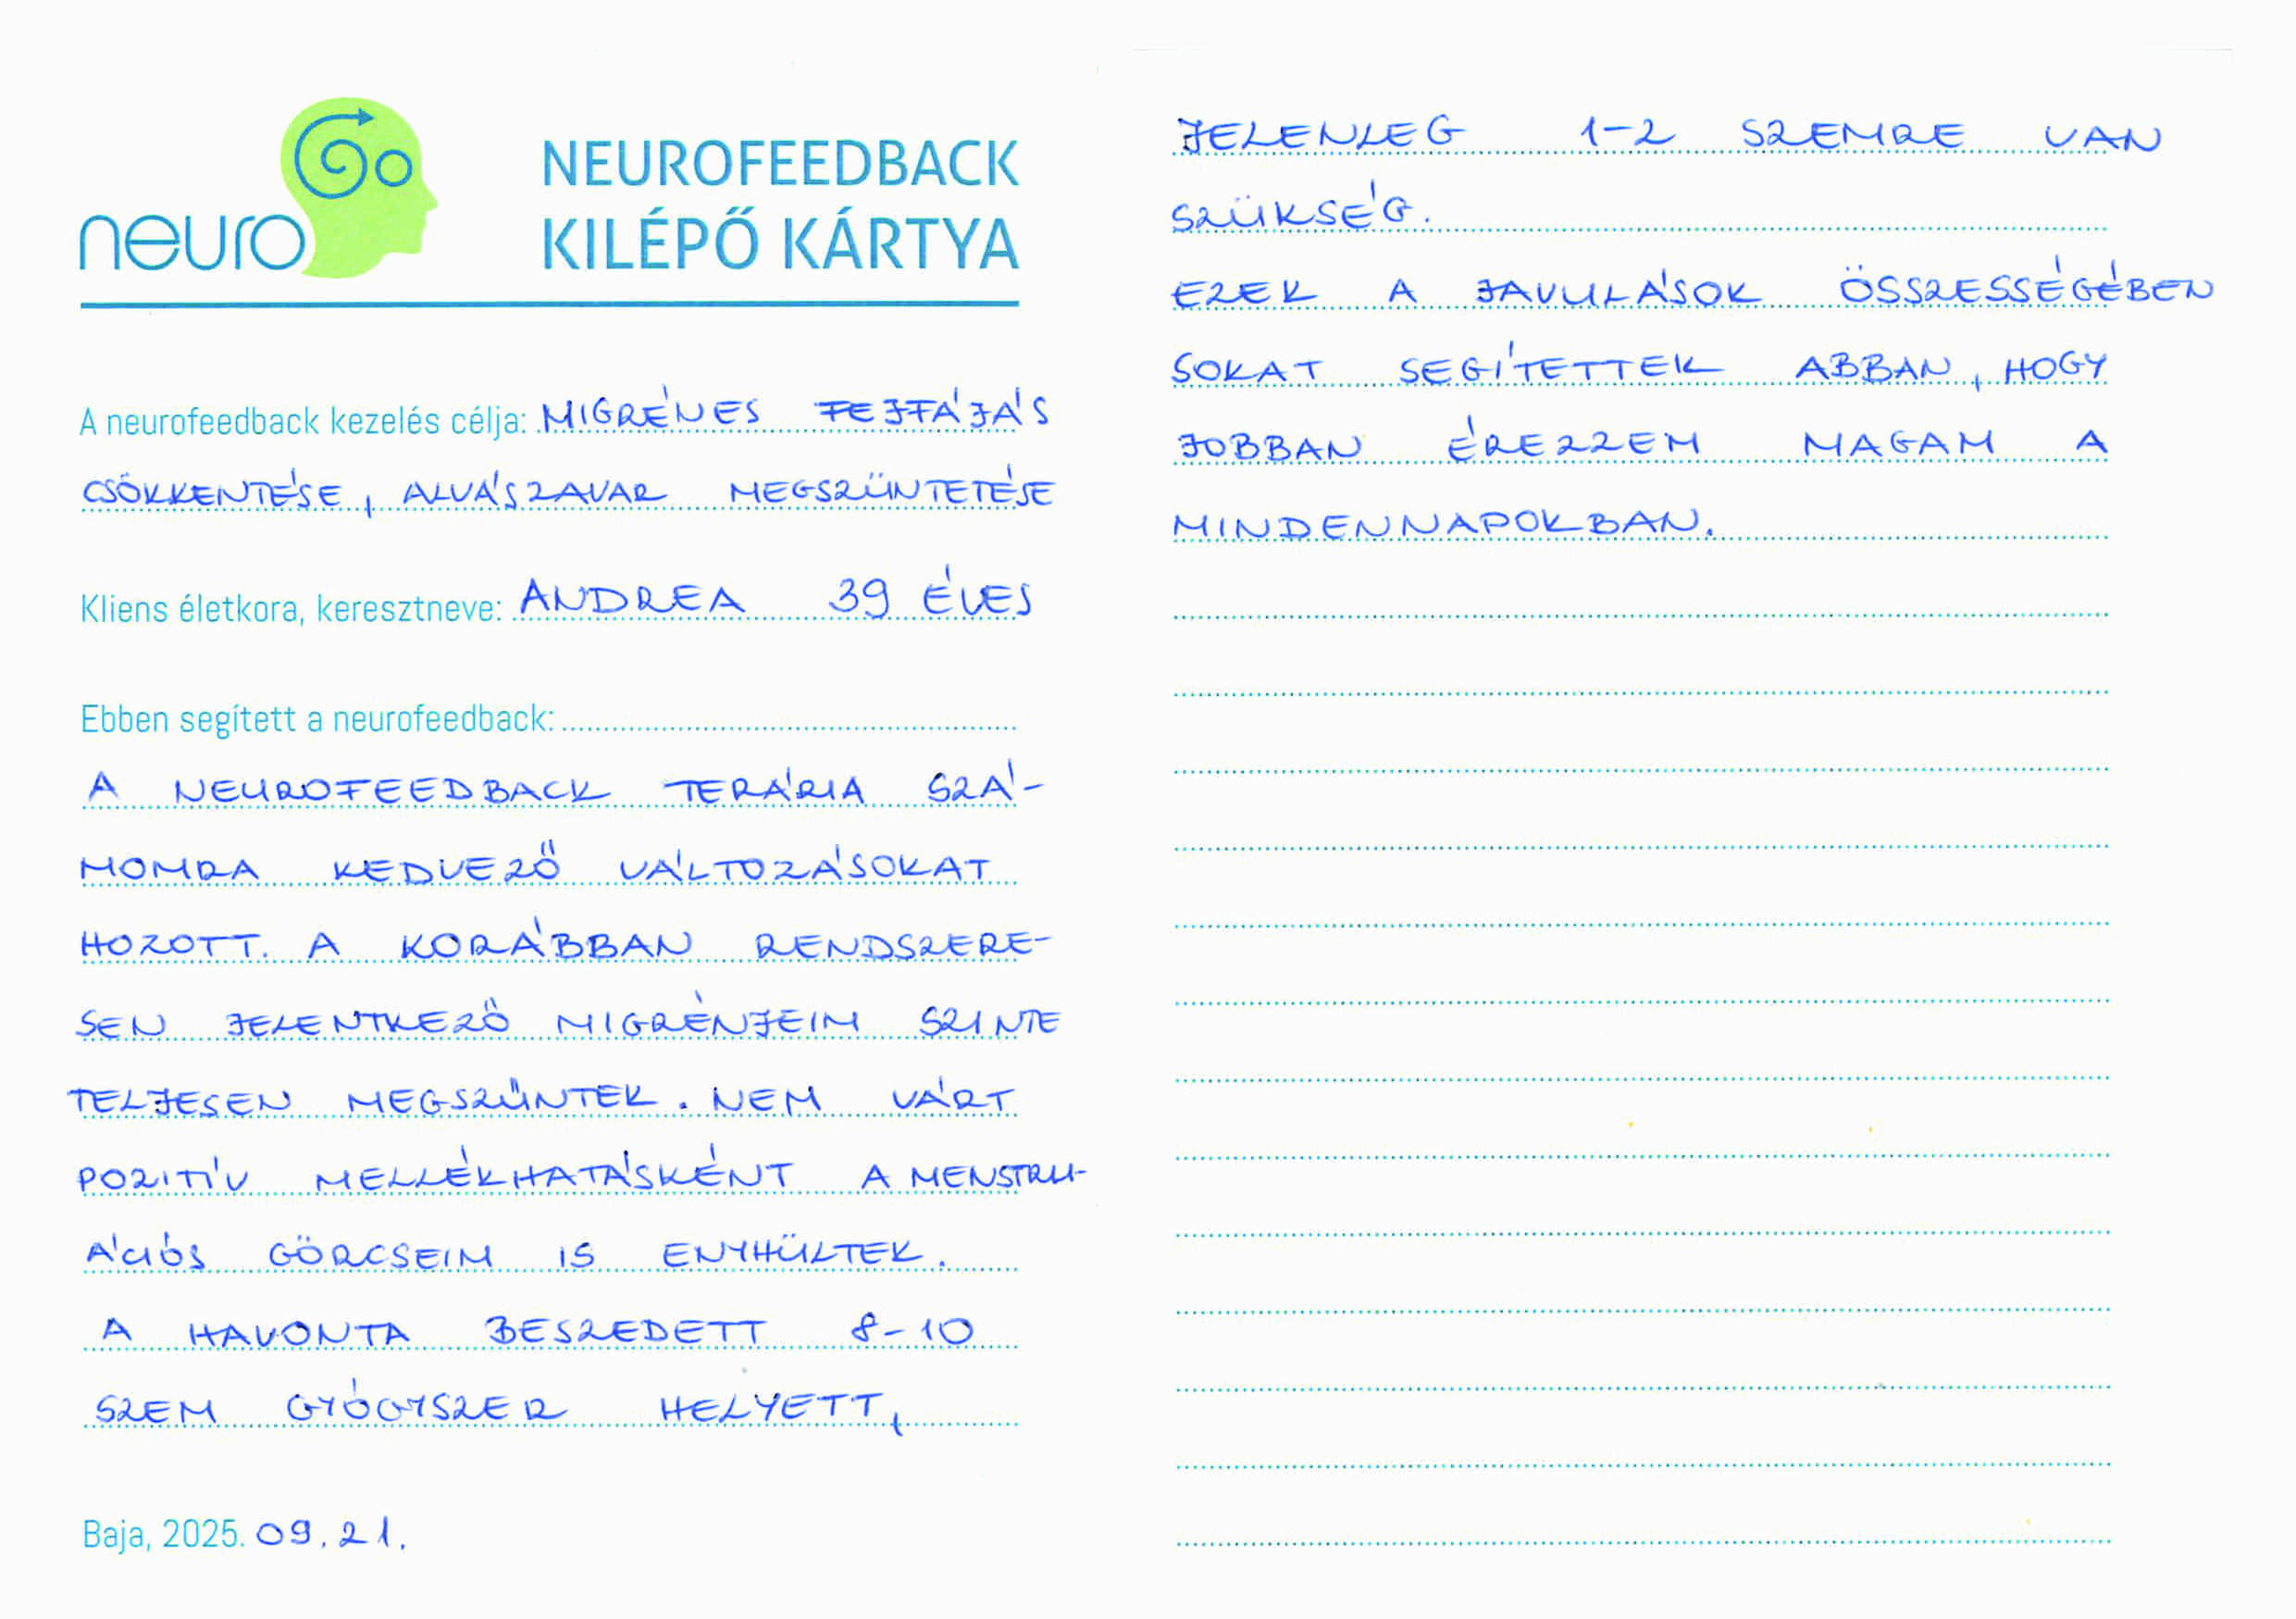 neuro
NEUROFEEDBACK
KILÉPŐ KÁRTYA
A neurofeedback kezelés célja: MIGRÉNES FEJFÁJÁS
CSÖKKENTÉSE, ALVÁSZAVAR MEGSZÜNTETÉSE
Kliens életkora, keresztneve: ANDREA 39 ÉVES
Ebben segített a neurofeedback:
A NEUROFEEDBACK TERÁPIA SZÁ-
MOMRA KEDVEZŐ VÁLTOZÁSOKAT
HOZOTT. A KORÁBBAN RENDSZERE-
SEN JELENTKEZŐ MIGRÉNJEIM SZINTE
TELJESEN MEGSZŰNTEK. NEM VÁRT
POZITÍV MELLÉKHATÁSKÉNT A MENSTRU-
ÁCIÓS GÖRCSEIM IS ENYHÜLTEK.
A HAVONTA BESZEDETT 8-10
SZEM GYÓGYSZER HELYETT,
Baja, 2025. 09.21.
JELENLEG 1-2 SZEMRE VAN
SZÜKSÉG.
EZEK A JAVULÁSOK ÖSSZESSÉGÉBEN
SOKAT SEGÍTETTEK ABBAN, HOGY
JOBBAN ÉREZZEM MAGAM A
MINDENNAPOKBAN.